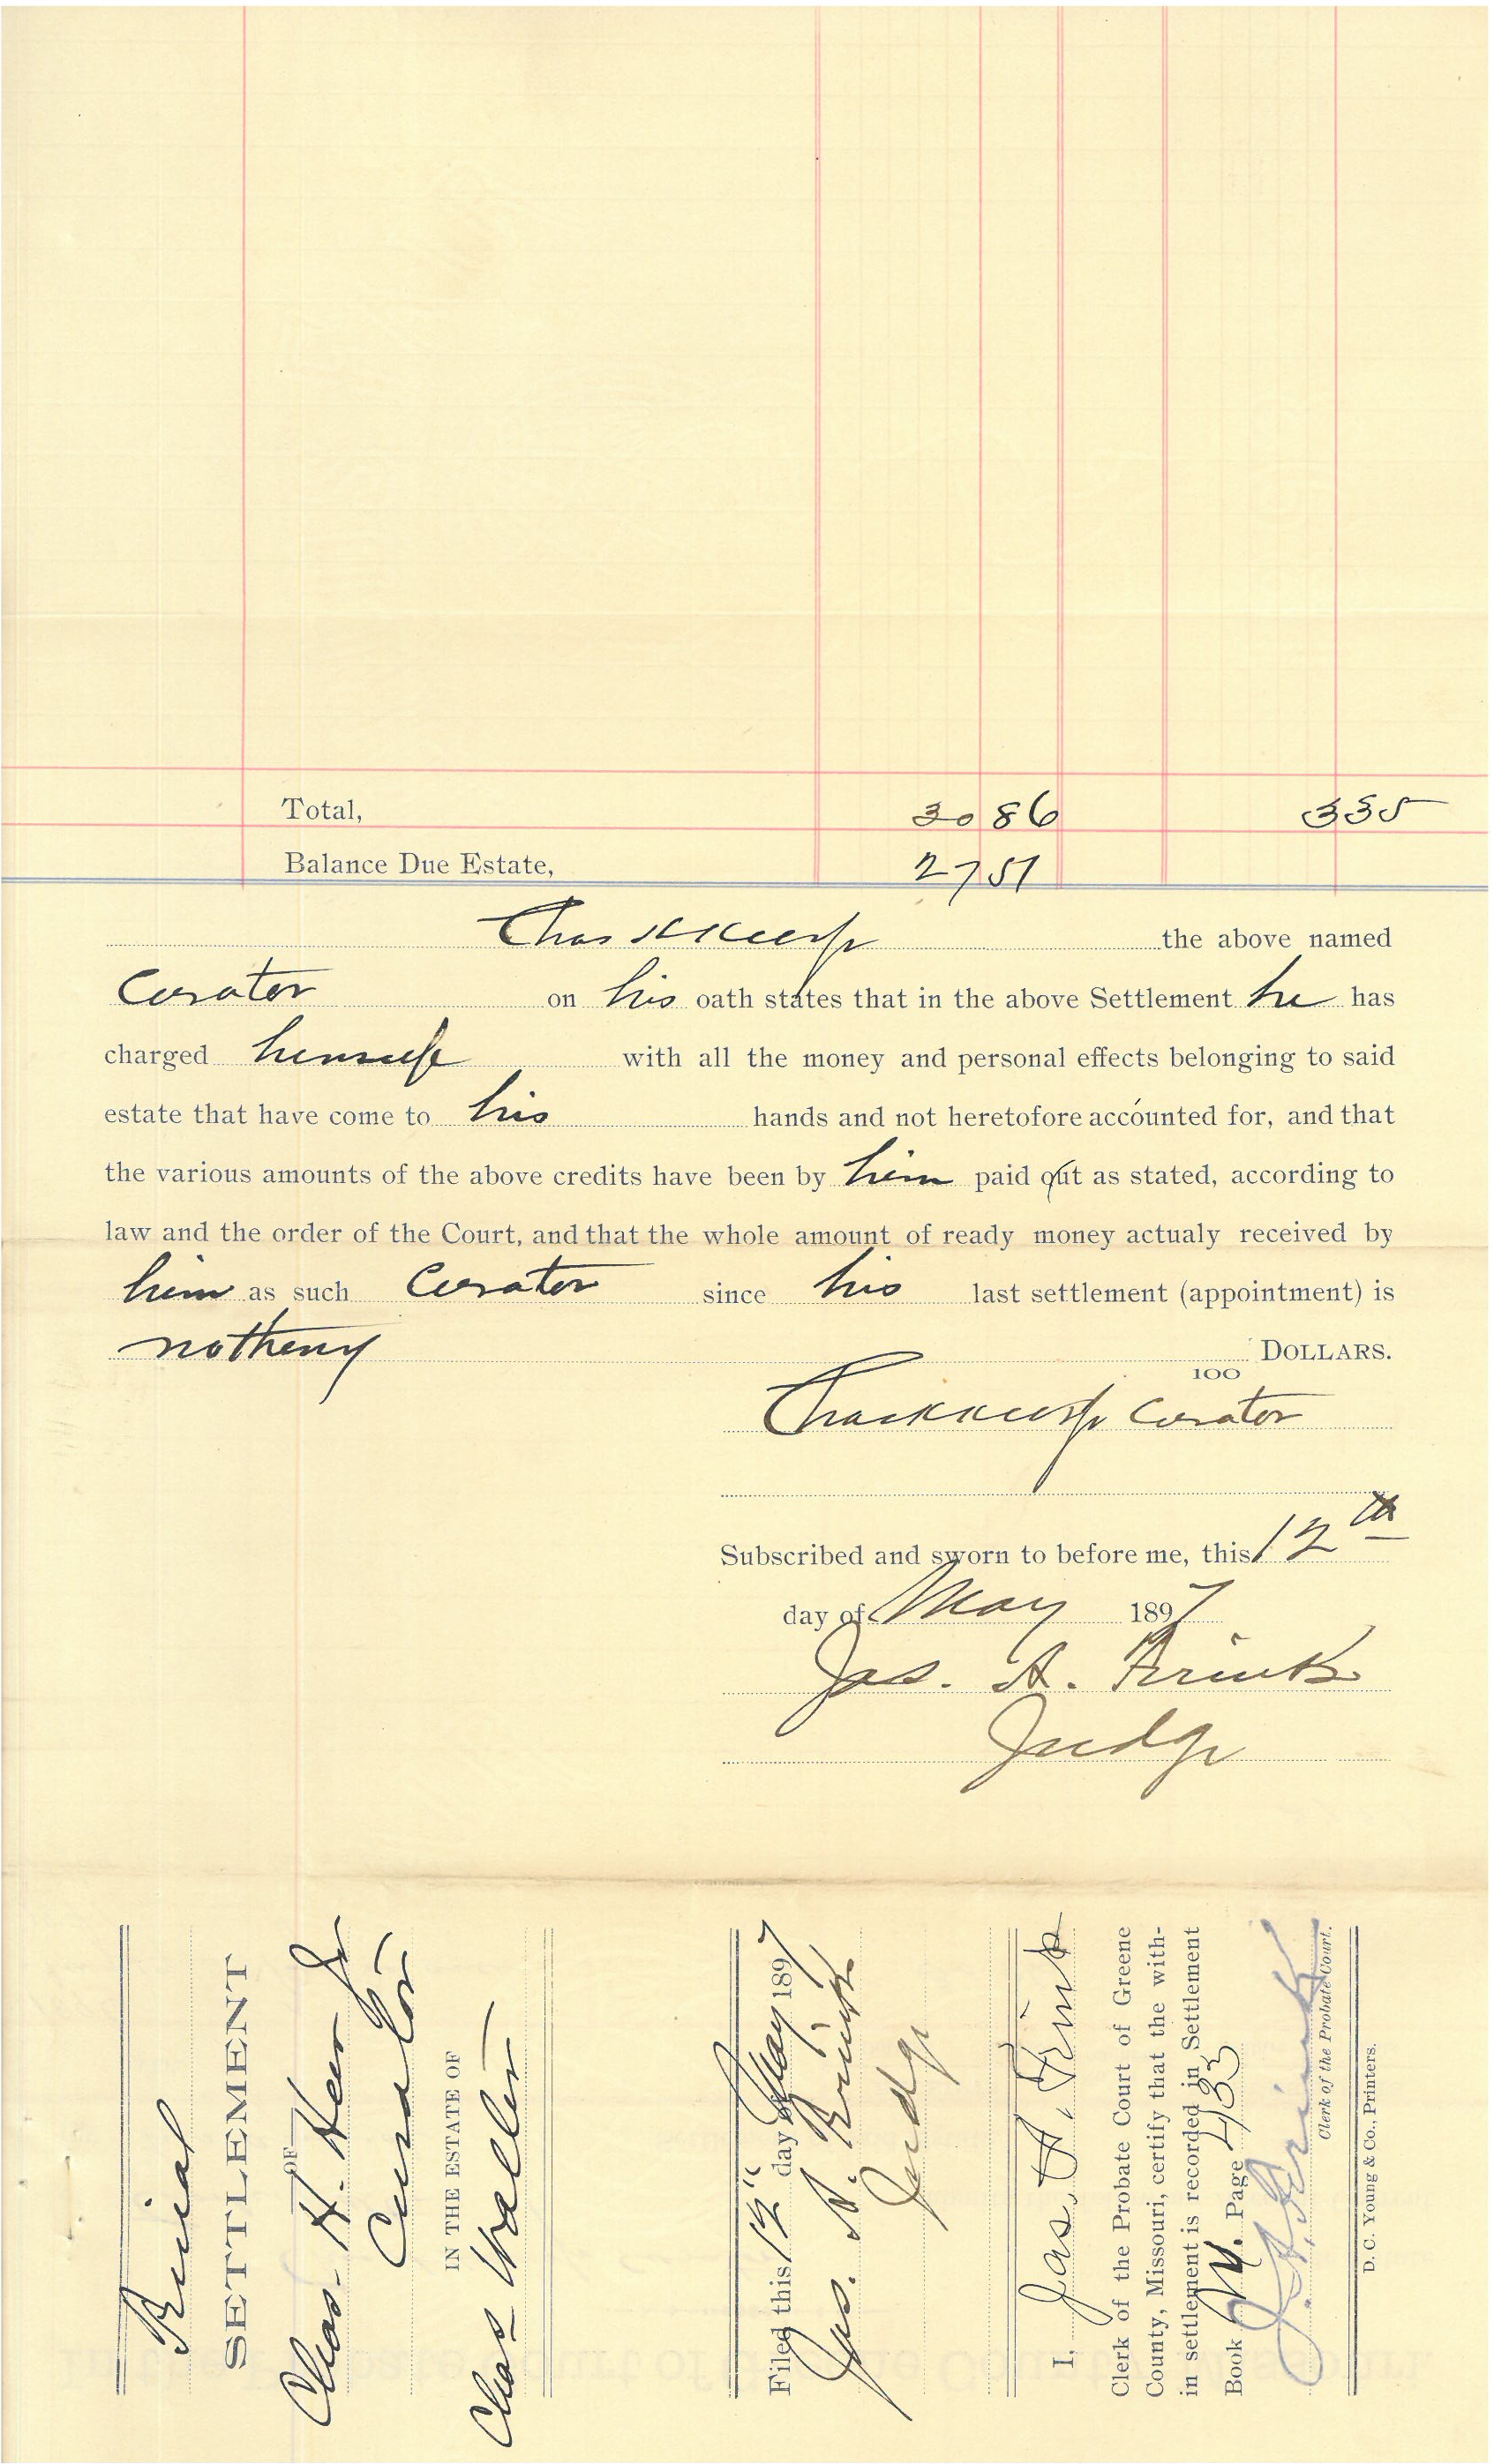 Total, 30 86 3 35
Balance Due Estate, 27 51
Chas H Heer Jr the above named
Curator on his oath states that in the above Settlement he has
charged himself with all the money and personal effects belonging to said
estate that have come to his hands and not heretofore accounted for, and that
the various amounts of the above credits have been by him paid out as stated, according to
law and the order of the Court, and that the whole amount of ready money actualy received by
him as such Curator since his last settlement (appointment) is
notheng
DOLLARS.
100
Chas H Heer Jr Curator
Subscribed and sworn to before me, this 12th
day of May 1897
Jas. A. Frink
Judge
Final
SETTLEMENT
OF
Chas. H. Heer Jr
Curator
IN THE ESTATE OF
Chas Waller
Filed this 12" day May 1897
Jas. A. Frink
Judge
I, Jas. A. Frink
Clerk of the Probate Court of Greene
County, Missouri, certify that the with-
in settlement is recorded in Settlement
Book Page 433
J. A. Frink
Clerk of the Probate Court.
D. C. Young & Co., Printers.